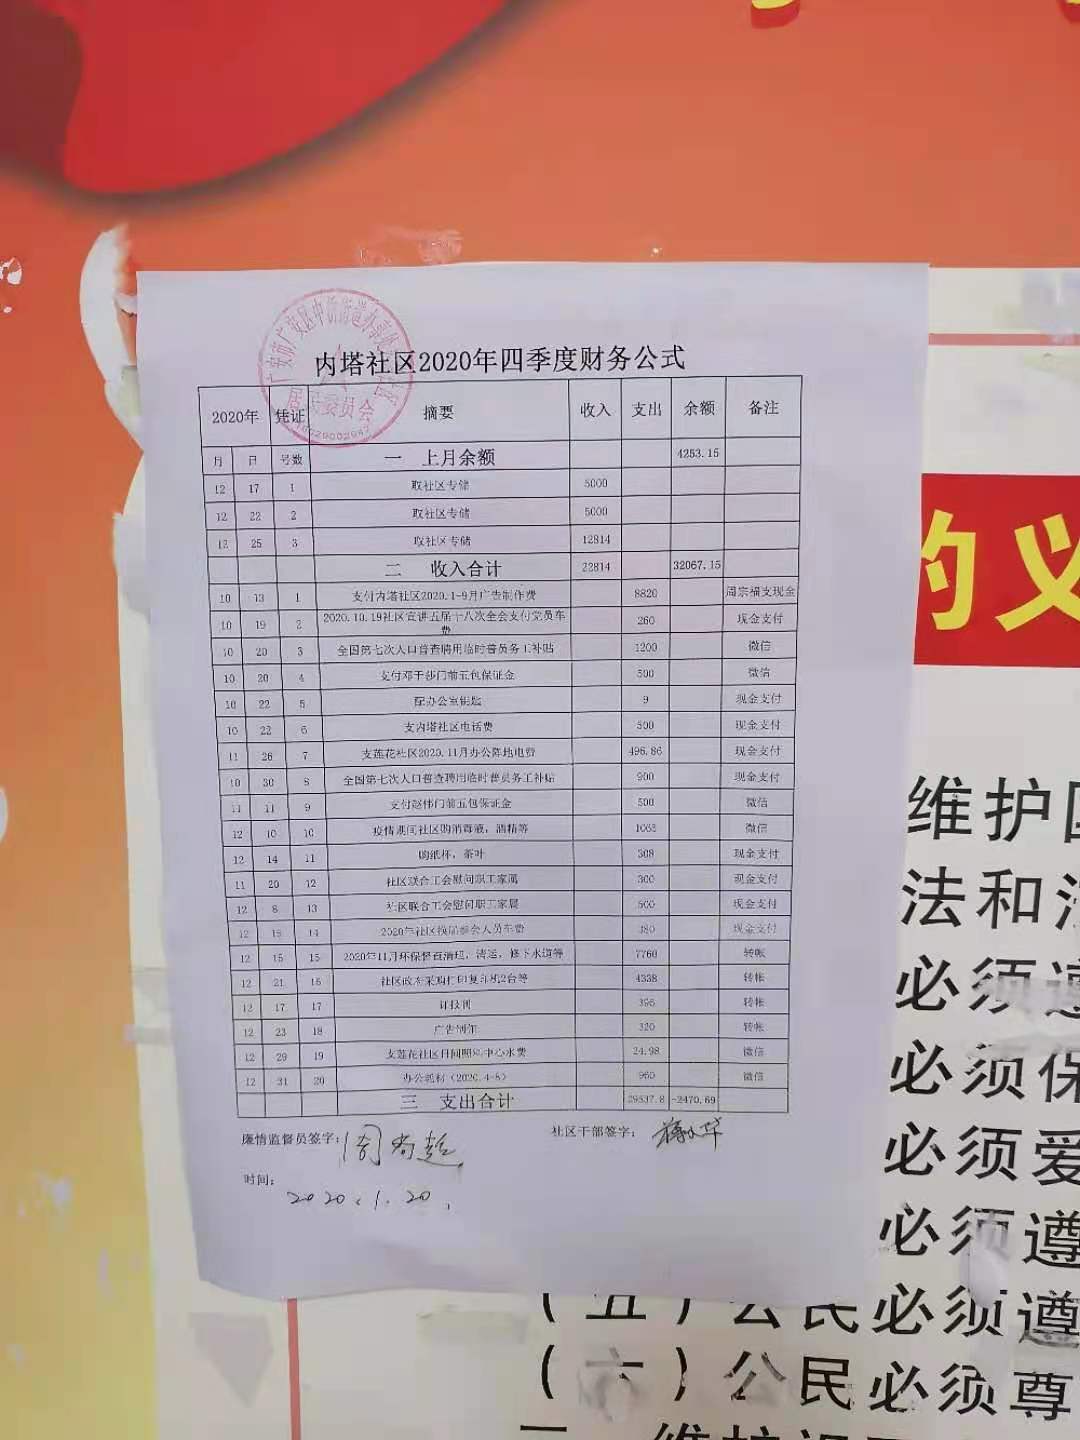 内塔社区2020年四季度财务公式
居民委员会
2020年 凭证 摘要 收入 支出 余额 备注
月 日 号数 一 上月余额 4253.15
12 17 1 取社区专储 5000
12 22 2 取社区专储 5000
12 25 3 取社区专储 12814
二 收入合计 22814 32067.15
10 13 1 支付内塔社区2020.1-9月广告制作费 8820 周宗福支现金
10 19 2 2020.10.19社区宣讲五届十八次全会支付党员车费 260 现金支付
10 20 3 全国第七次人口普查聘用临时普员务工补贴 1200 微信
10 20 4 支付邓干莎门前五包保证金 500 微信
10 22 5 配办公室钥匙 9 现金支付
10 22 6 支内塔社区电话费 500 现金支付
11 26 7 支莲花社区2020.11月办公阵地电费 496.86 现金支付
10 30 8 全国第七次人口普查聘用临时普员务工补贴 900 现金支付
11 11 9 支付赵伟门前五包保证金 500 微信
12 10 10 疫情期间社区购消毒液，酒精等 1065 微信
12 14 11 购纸杯，茶叶 308 现金支付
11 20 12 社区联合工会慰问职工家属 300 现金支付
12 8 13 社区联合工会慰问职工家属 500 现金支付
12 14 2020年社区换届参会人员车费 380 现金支付
12 15 15 2020年11月环保督查清理，清运，修下水道等 7760 转帐
12 21 16 社区政府采购打印复印机2台等 4338 转帐
12 17 17 订报刊 396 转帐
12 23 18 广告制作 320 转帐
12 29 19 支莲花社区日间照料中心水费 24.98 微信
12 31 20 办公耗材（2020.4-8） 960 微信
三 支出合计 29537.8 -2470.69
廉情监督员签字： 周尚超
社区干部签字：
时间：
2020.1.20.
的义
维护
法和
必须遵
必须保
必须爱
必须遵
（五）公民必须遵
（六）公民必须尊